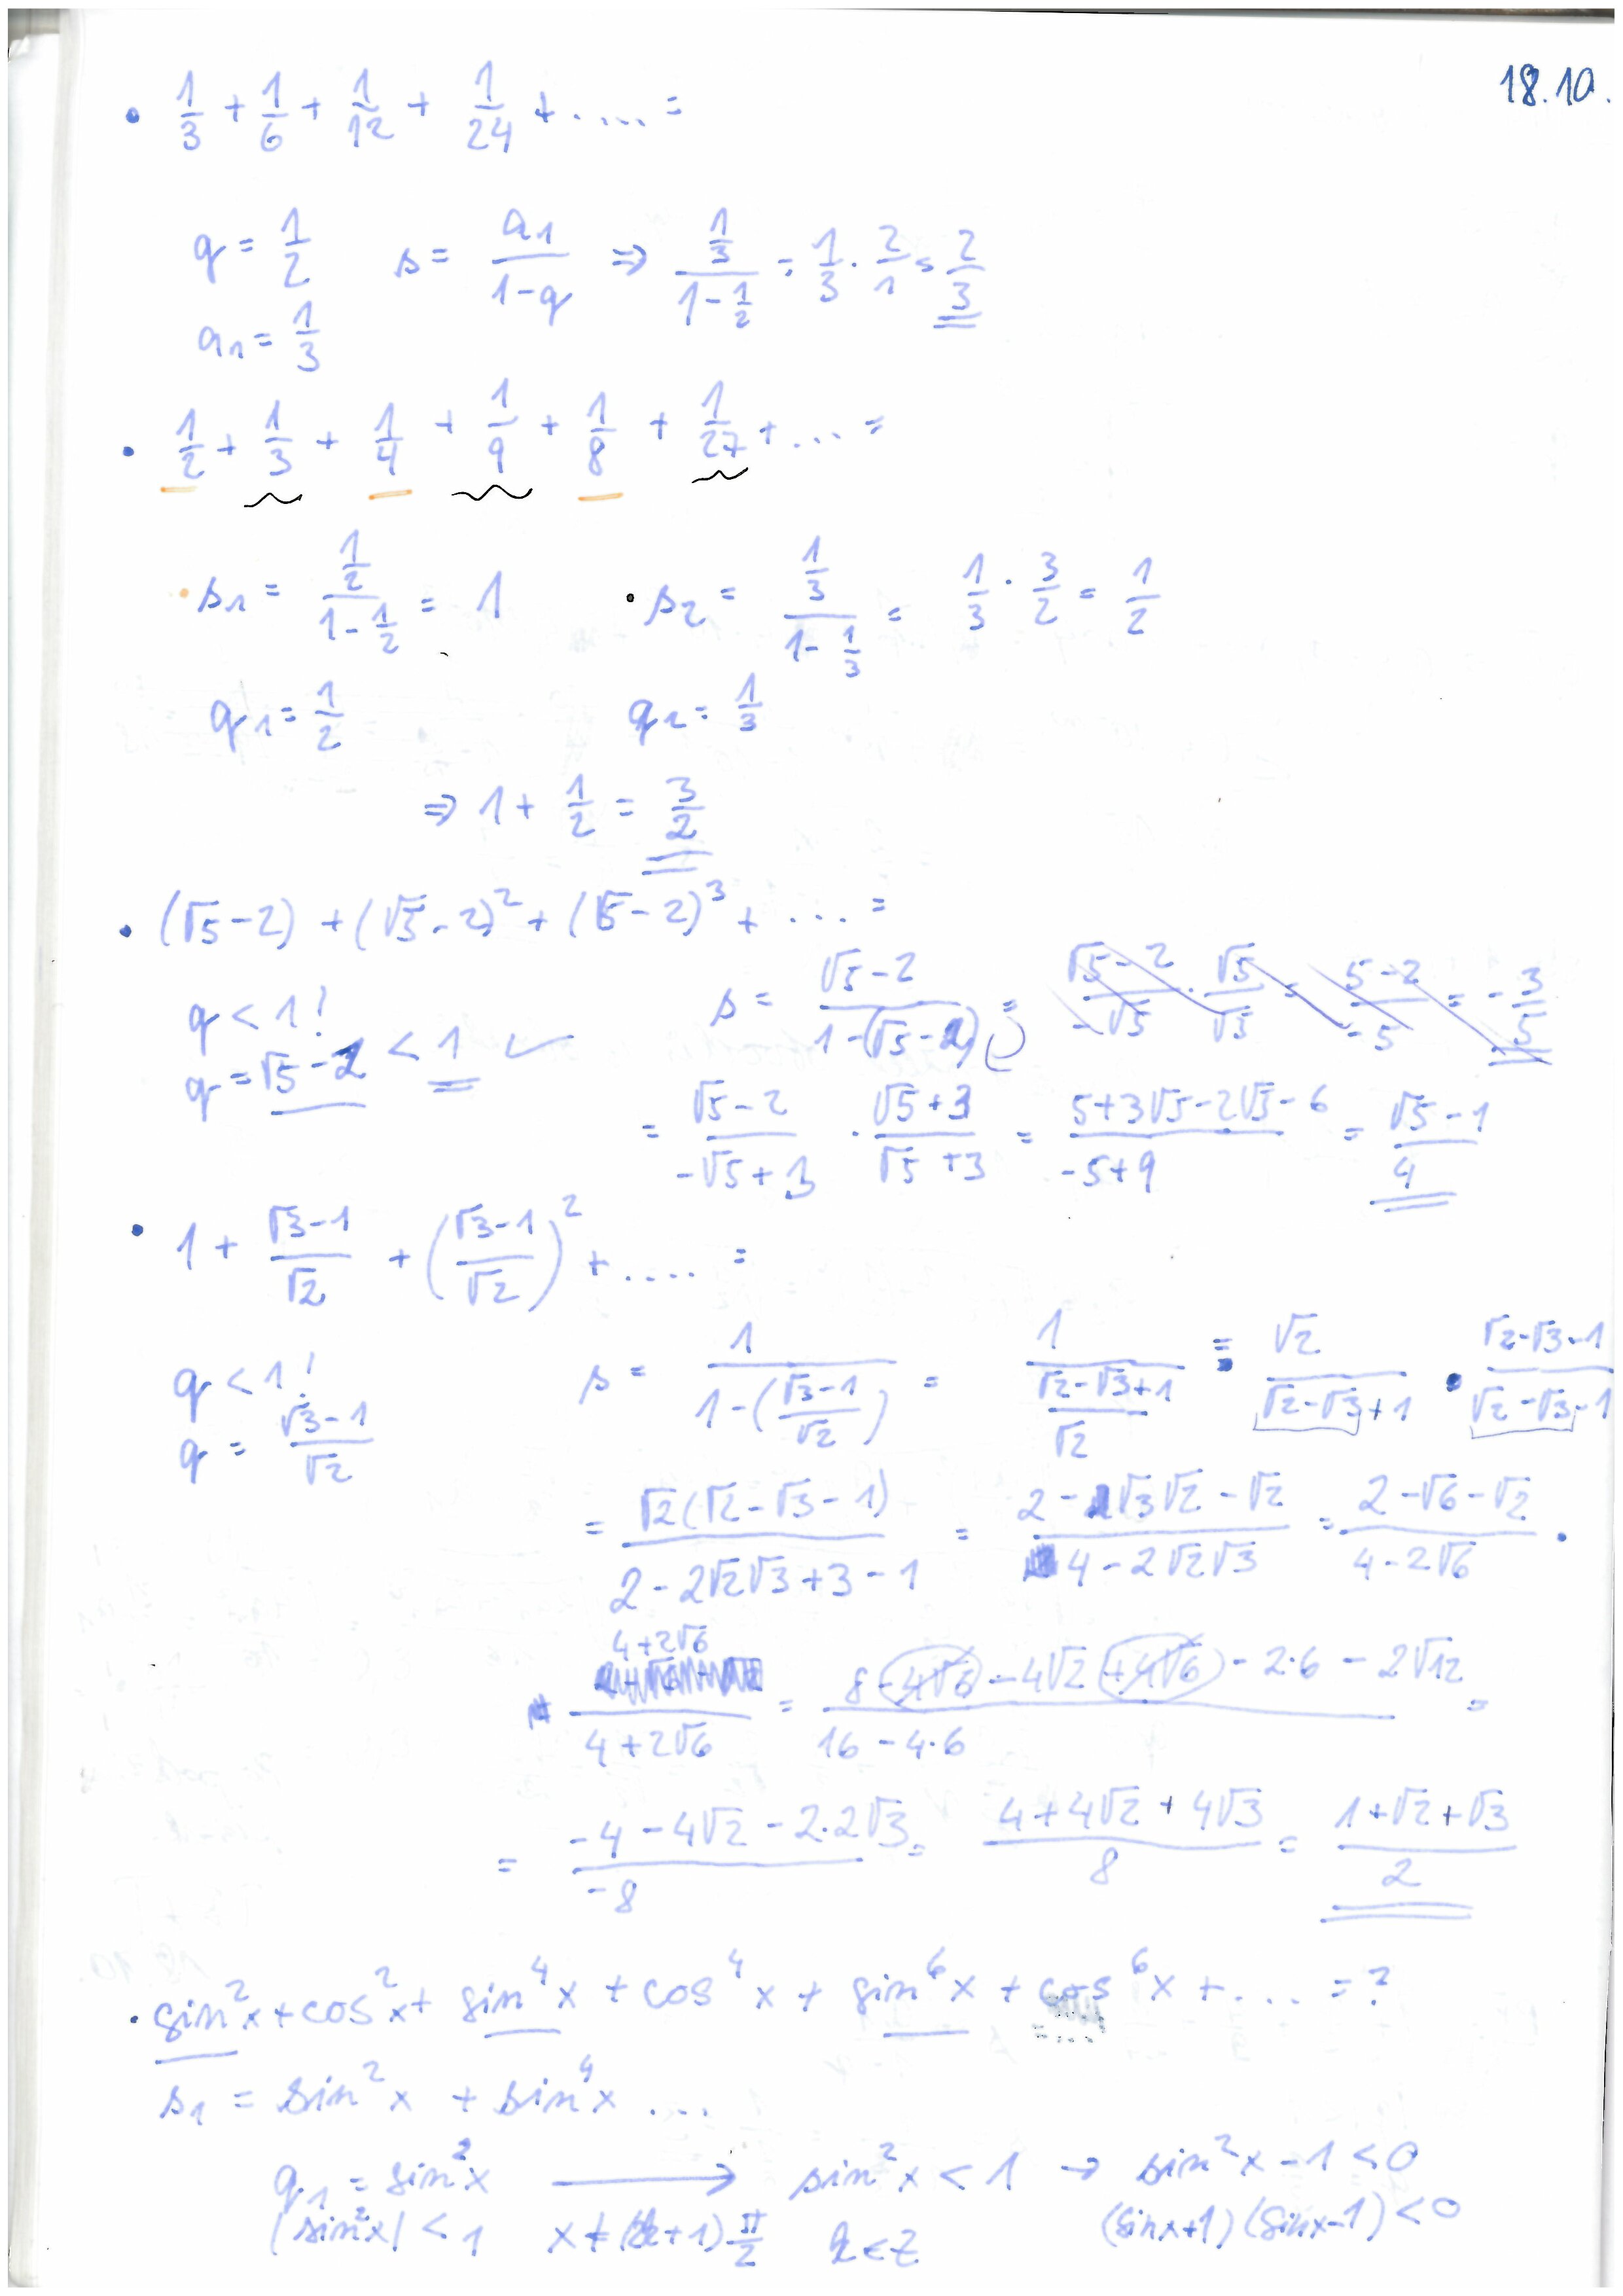 18.10.
• 1/3 + 1/6 + 1/12 + 1/24 + ..... =
q = 1/2   s = a₁/(1-q) ⇒ (1/3)/(1-1/2) = 1/3 · 2/1 = 2/3
a₁ = 1/3
• 1/2 + 1/3 + 1/4 + 1/9 + 1/8 + 1/27 + .... =
• s₁ = (1/2)/(1-1/2) = 1   • s₂ = (1/3)/(1-1/3) = 1/3 · 3/2 = 1/2
q₁ = 1/2   q₂ = 1/3
⇒ 1 + 1/2 = 3/2
• (√5-2) + (√5-2)² + (√5-2)³ + .... =
q < 1!   s = (√5-2)/(1-(√5-2)) = (√5-2)/(-√5) · √5/√5 = (5-2)/(-5) = -3/5
q = √5-2 < 1 ✓
= (√5-2)/(-√5+3) · (√5+3)/(√5+3) = (5+3√5-2√5-6)/(-5+9) = (√5-1)/4
• 1 + (√3-1)/√2 + ((√3-1)/√2)² + ..... =
q < 1!   s = 1/(1-((√3-1)/√2)) = 1/((√2-√3+1)/√2) = √2/(√2-√3+1) • (√2-√3-1)/(√2-√3-1)
q = (√3-1)/√2
= √2(√2-√3-1)/(2-2√2√3+3-1) = (2-√3√2-√2)/(4-2√2√3) = (2-√6-√2)/(4-2√6) ·
(4+2√6)/(4+2√6) = (8-4√6-4√2+4√6-2·6-2√12)/(16-4·6) =
= (-4-4√2-2·2√3)/(-8) = (4+4√2+4√3)/8 = (1+√2+√3)/2
• sin²x + cos²x + sin⁴x + cos⁴x + sin⁶x + cos⁶x + .... = ?
s₁ = sin²x + sin⁴x ...
q₁ = sin²x ⟶ sin²x < 1 → sin²x - 1 < 0
|sin²x| < 1   x ≠ (2k+1) π/2   k ∈ Z   (sinx+1)(sinx-1) < 0